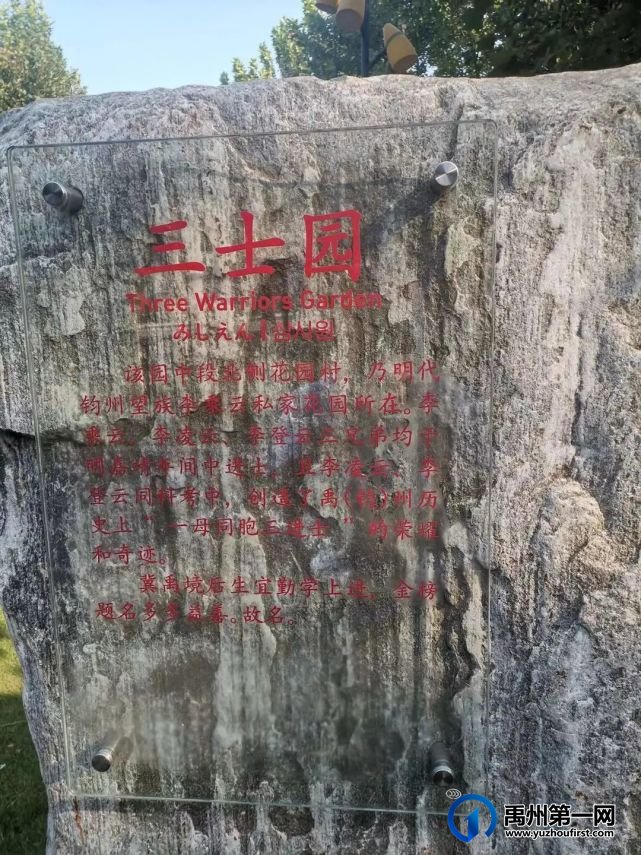 三士园
Three Warriors Garden
みしえん | 삼사원
该园中段北侧花园村，乃明代
钧州望族李乘云私家花园所在。李
乘云、李凌云、李登云三兄弟均于
明嘉靖年间中进士，且李凌云、李
登云同科考中，创造了禹(钧)州历
史上“一母同胞三进士”的荣耀
和奇迹。
冀禹境后生宜勤学上进，金榜
题名多多益善。故名。
禹州第一网
www.yuzhoufirst.com